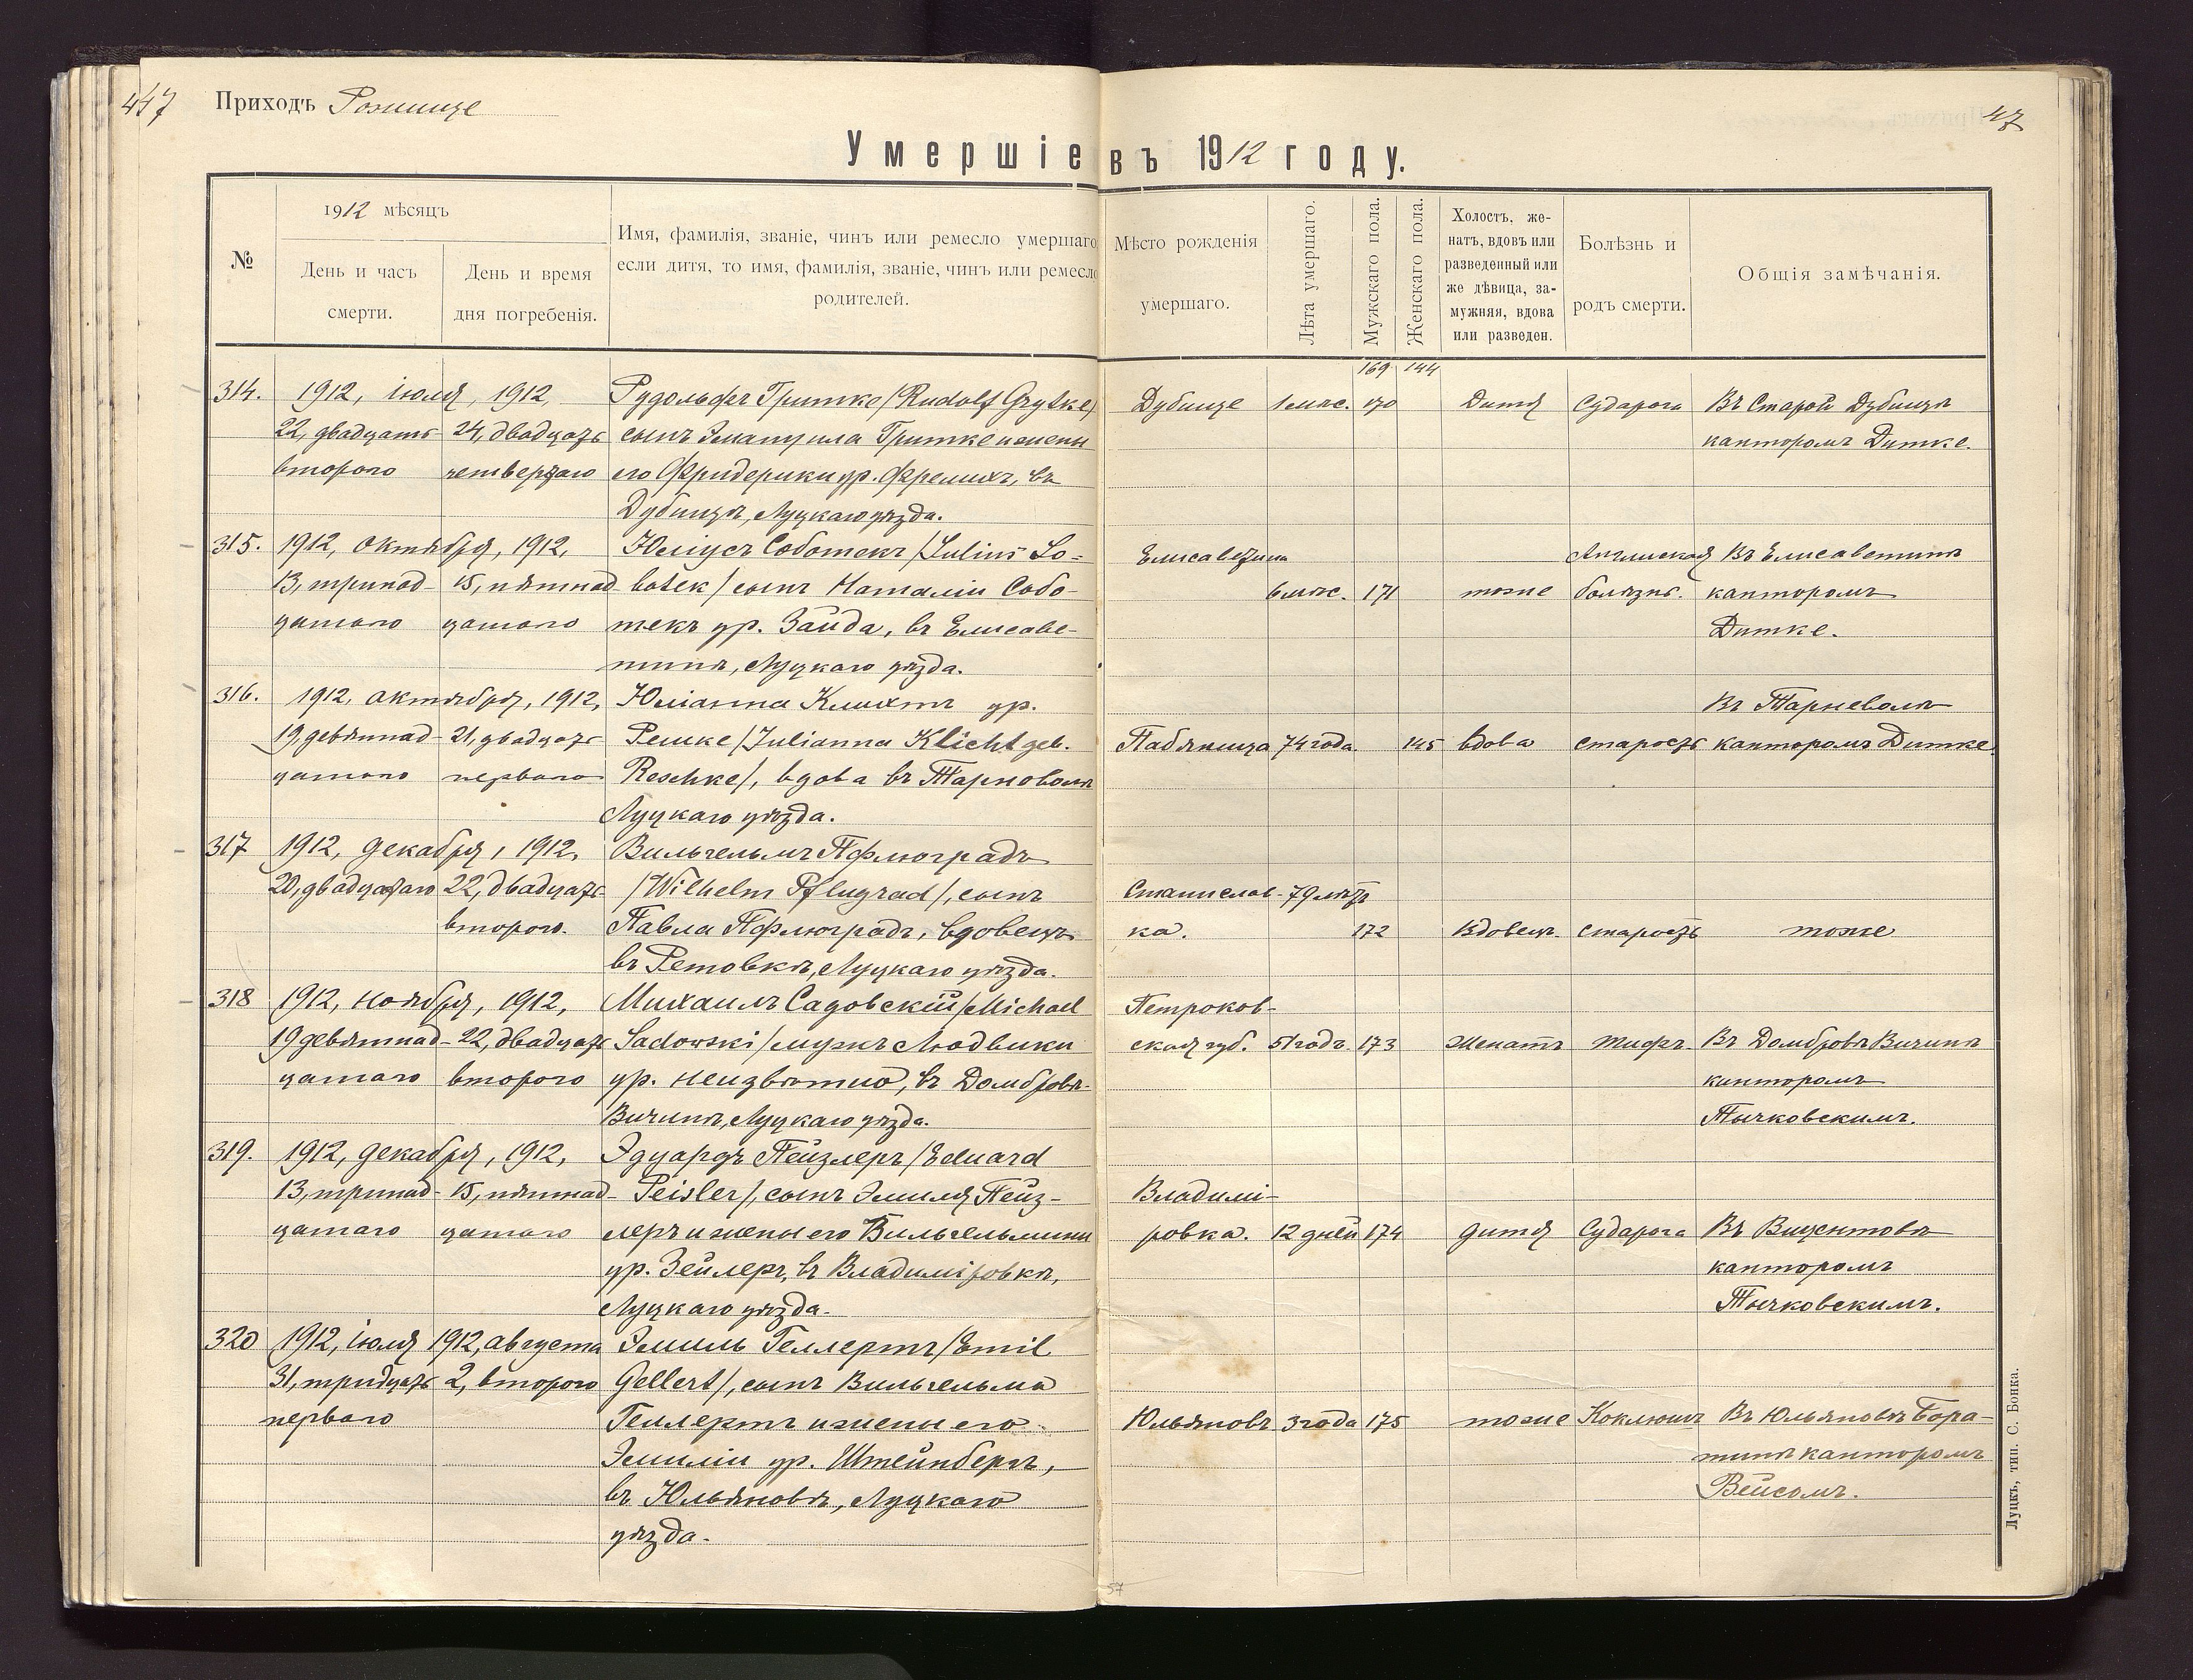 447
Приходъ Рожище
47
Умершіе въ 1912 году.
№
1912 мѣсяцъ
День и часъ смерти.
День и время дня погребенія.
Имя, фамилія, званіе, чинъ или ремесло умершаго
если дитя, то имя, фамилія, званіе, чинъ или ремесло
родителей.
Мѣсто рожденія
умершаго.
Лѣта умершаго.
Мужскаго пола.
Женскаго пола.
Холостъ, же-
натъ, вдовъ или
разведенный или
же дѣвица, за-
мужняя, вдова
или разведен.
Болѣзнь и
родъ смерти.
Общія замѣчанія.
169 144
314. 1912, іюля, 1912, Рудольфъ Гритке /Rudolf Grytke/ Дубище 1 мѣс. 170 Дитя Судорога Въ Старой Дубищѣ
22, двадцать 24, двадцать сынъ Эмануила Гритке и жены канторомъ Дитке.
второго четвертаго его Фридерики ур. Фрелихъ, въ
Дубищѣ, Луцкаго уѣзда.
315. 1912, октября, 1912, Юліусъ Соботекъ /Julius So- Елисаветинъ Англиская Въ Елисаветинѣ
13, тринад- 15, пятнад- botek/ сынъ Наталіи Собо- 6 мѣс. 171 тоже болѣзнь. канторомъ
цатаго цатаго текъ ур. Зайда, въ Елисаве- Дитке.
тинѣ, Луцкаго уѣзда.
316. 1912, октября, 1912, Юліанна Клихтъ ур. Въ Тарневолѣ
19, девятнад- 21, двадцать Решке /Julianna Klicht geb. Пабяница 74 года. 145 вдова старость канторомъ Дитке.
цатаго перваго Reschke/, вдова въ Тарноволѣ
Луцкаго уѣзда.
317 1912, декабря, 1912, Вильгельмъ Пфлюградъ
20, двадцатаго 22, двадцать /Wilhelm Pflugrad/, сынъ Станислав- 79 лѣтъ
второго. Павла Пфлюградъ, вдовецъ ка. 172 Вдовецъ. старость тоже
въ Ретовкѣ, Луцкаго уѣзда.
318 1912, ноября, 1912, Михаилъ Садовскій /Michael Петроков-
19 девятнад- 22, двадцать Sadowski/ мужъ Людвики ская губ. 51 годъ. 173 Женатъ тифъ. Въ Домбровѣ Вичинѣ
цатаго второго ур. неизвѣстно, въ Домбровѣ- канторомъ
Вичинѣ, Луцкаго уѣзда. Тычковскимъ.
319. 1912, декабря, 1912, Эдуардъ Пейзлеръ /Eduard
13, тринад- 15, пятнад- Peisler/, сынъ Эмиля Пейз- Владимі-
цатаго цатаго леръ и жены его Вильгельмины ровка. 12 дней 174 дитя Судорога Въ Вицентовѣ
ур. Зейлеръ, въ Владиміровкѣ, канторомъ
Луцкаго уѣзда. Тычковскимъ.
320 1912, іюля 1912, августа Эмиль Геллертъ /Emil
31, тридцать 2, второго Gellert/, сынъ Вильгельма
перваго Геллертъ и жены его Юльяновъ 3 года 175 тоже Коклюшъ Въ Юльяновѣ Бора-
Эмиліи ур. Штейнбергъ, тинѣ канторомъ
въ Юльяновѣ, Луцкаго Вейсомъ.
уѣзда.
Луцкъ, тип. С. Бонка.
57